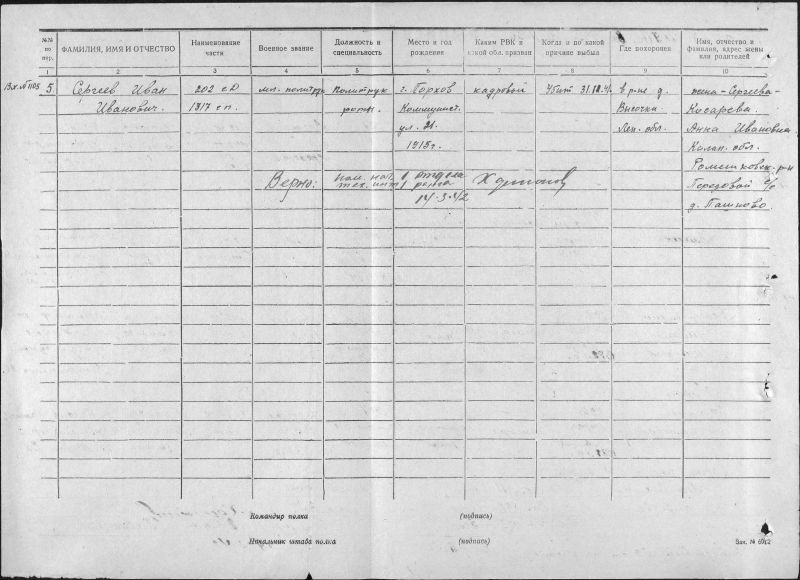 №№ по пер.
ФАМИЛИЯ, ИМЯ И ОТЧЕСТВО
Наименование части
Военное звание
Должность и специальность
Место и год рождения
Каким РВК и какой обл. призван
Когда и по какой причине выбыл
Где похоронен
Имя, отчество и фамилия, адрес жены или родителей
1 2 3 4 5 6 7 8 9 10
5 Сергеев Иван
Иванович.
202 сд
1317 сп.
мл. политрук
Политрук
роты.
г. Порхов
Коммунист.
ул. 21.
1918 г.
кадровой
Убит 31.12.41
в р-не д.
Высочка
Лен. обл.
жена - Сергеева-
Косарева
Анна Ивановна
Калин. обл.
Рамешковск. р-н
д. Пашково.
Верно:
пом. нач. 1 отдела
тех. инт 1 ранга
14.3.42
Командир полка (подпись)
Начальник штаба полка (подпись)